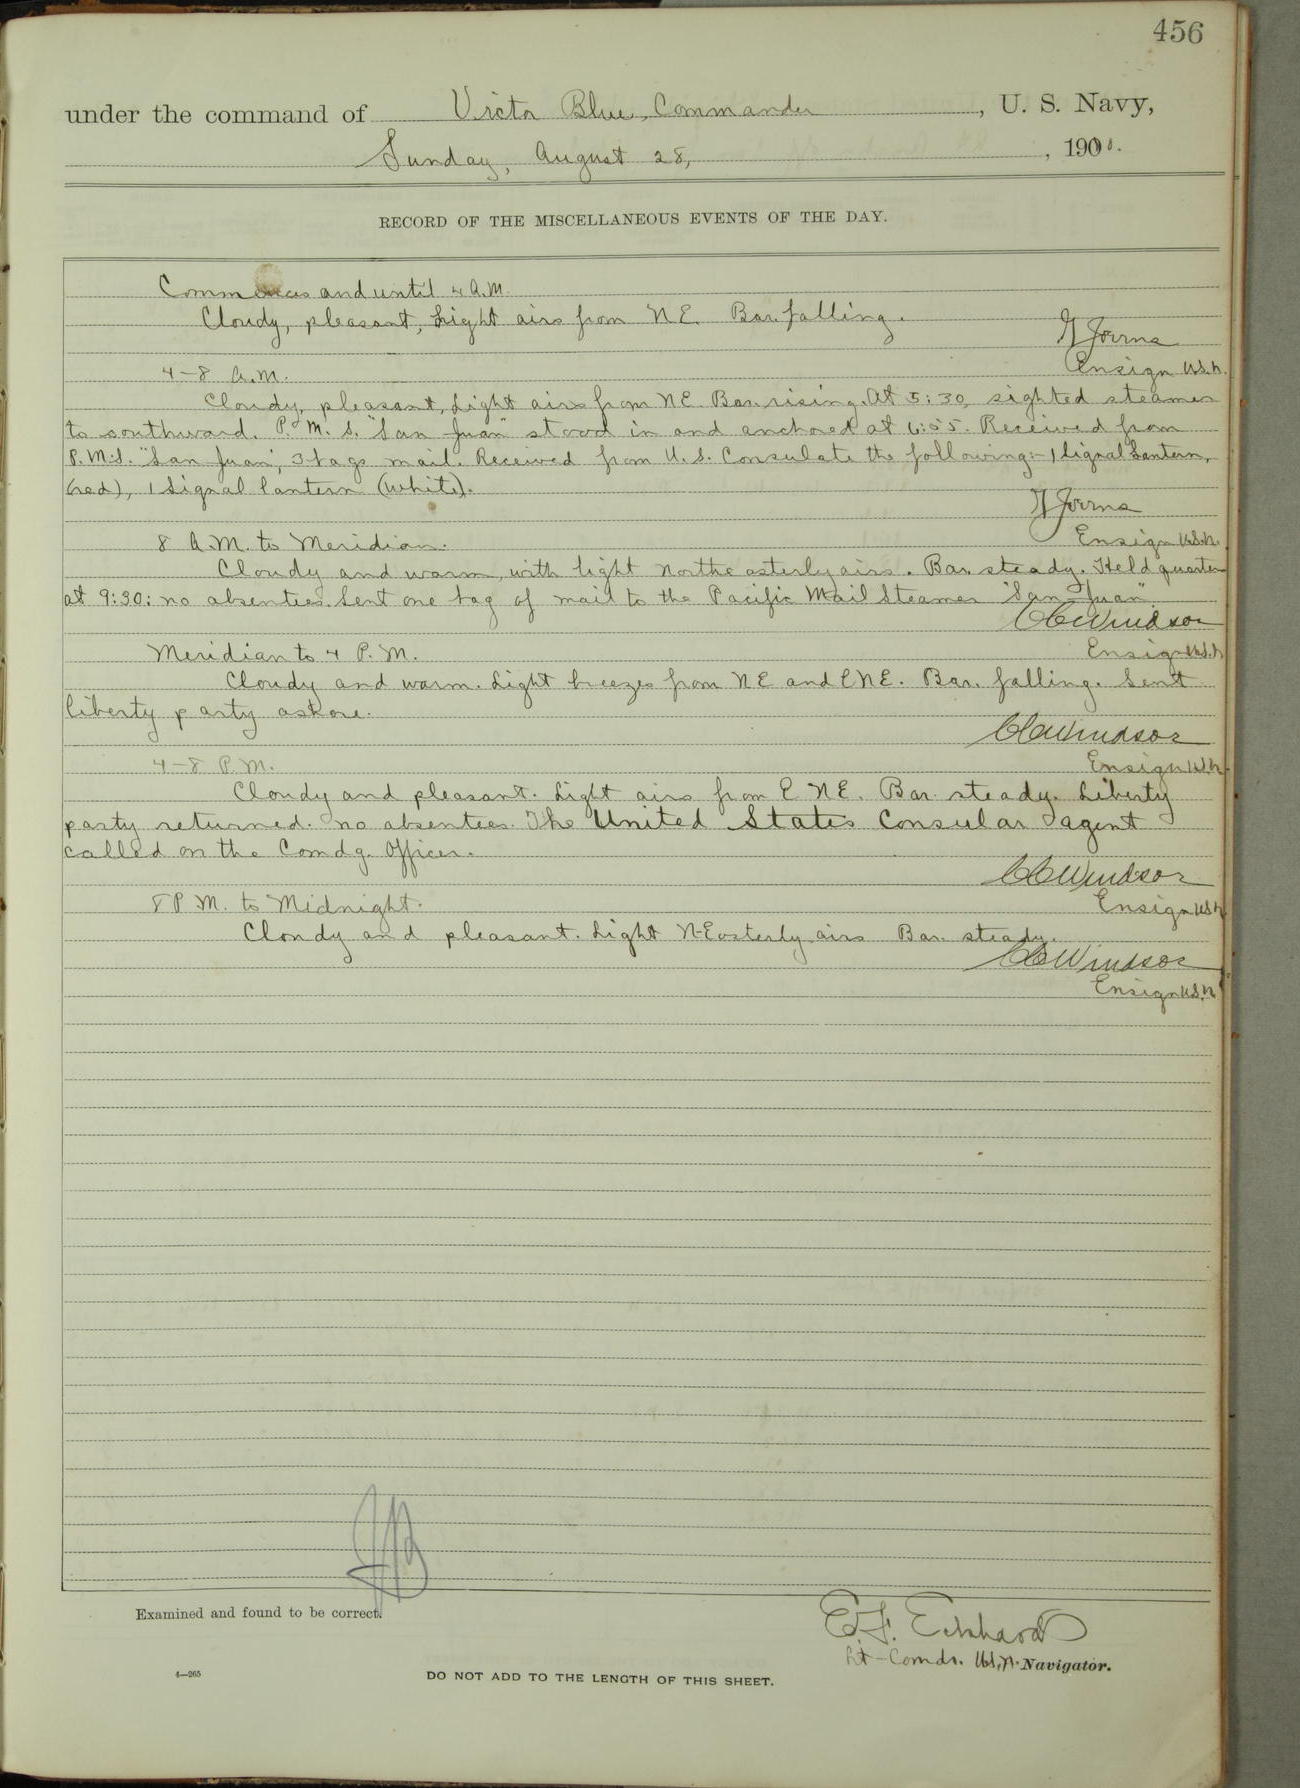 456
under the command of Victor Blue, Commander, U. S. Navy,
Sunday, August 28, , 190
RECORD OF THE MISCELLANEOUS EVENTS OF THE DAY.
Commences and until 4 A.M.
Cloudy, pleasant, Light airs from NE. Bar. falling.
4-8 A.M.
Ensign U.S.N.
Cloudy, pleasant, Light airs from NE Bar. rising. At 5:30, sighted steamer
to southward. P. M. S. "San Juan" stood in and anchored at 6:55. Received from
P.M.S. "San Juan", 3 bags mail. Received from U. S. Consulate the following:- 1 Signal Lantern,
(red), 1 Signal lantern (white).
8 A.M. to Meridian.
Ensign U.S.N.
Cloudy and warm, with light northeasterly airs. Bar. steady. Held quarters
at 9:30: no absentees. Sent one bag of mail to the Pacific Mail Steamer "San Juan"
CC Windsor
Meridian to 4 P. M.
Ensign U.S.N
Cloudy and warm. Light breezes from NE and ENE. Bar. falling. Sent
liberty party ashore.
CC Windsor
4-8 P.M.
Ensign U.S.N.
Cloudy and pleasant. Light airs from E NE. Bar. steady. Liberty
party returned. no absentees. The United States Consular agent
called on the Comdg. Officer.
CC Windsor
8 P.M. to Midnight.
Ensign U.S.N
Cloudy and pleasant. Light N-Easterly airs Bar. steady.
CC Windsor
Ensign U.S.N
Examined and found to be correct.
E. F. Eckhardt
Lt-Comdr. U.S.N. Navigator.
4—265
DO NOT ADD TO THE LENGTH OF THIS SHEET.